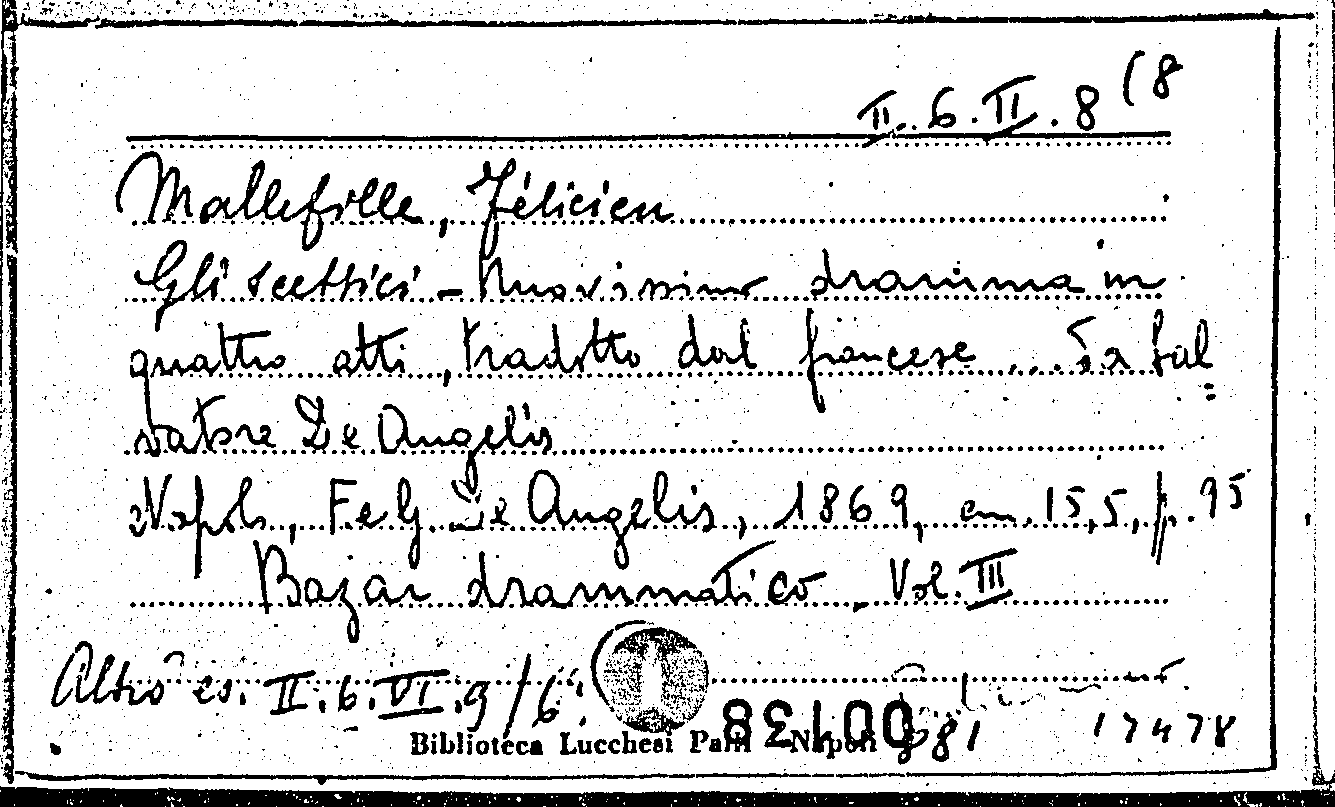 II.6.II.8 (8
Mallefille, Félicien
Gli scettici - Nuovissimo dramma in
quattro atti, tradotto dal francese ... da Sal=
vatore De Angelis
Napoli, F. e G. De Angelis, 1869, cm. 15,5, p. 95
Bazar drammatico - Vol. III
Altro es. II.6.VI.9/6
Biblioteca Lucchesi Palli - Napoli
17478